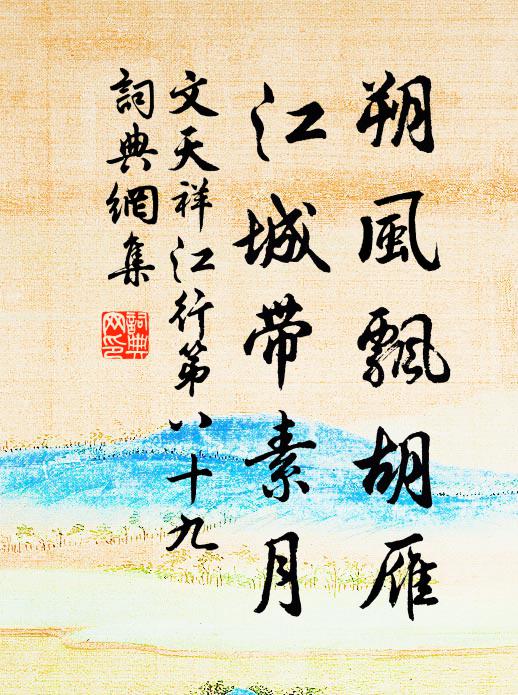 朔風飄胡雁
江城帶素月
文天祥江行第八十九
詞典網集
詞典網印